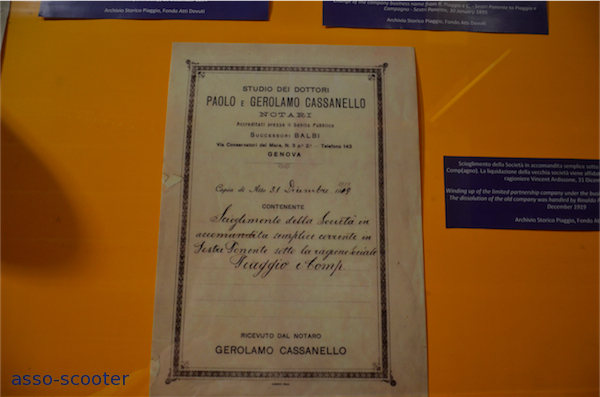 Archivio Storico Piaggio, Fondo Atti Dovuti
Change of the company business name from R. Piaggio e C. - Sestri Ponente to Piaggio e
Compagno - Sestri Ponente, 10 January 1895
Archivio Storico Piaggio, Fondo Atti Dovuti
STUDIO DEI DOTTORI
PAOLO E GEROLAMO CASSANELLO
NOTARI
Accreditati presso il Debito Pubblico
SUCCESSORI BALBI
Via Conservatori del Mare, N. 5 pº 2º - Telefono 143
GENOVA
Copia di Atto 31 Dicembre 1919
CONTENENTE
Scioglimento della Società in
accomandita semplice corrente in
Sestri Ponente sotto la ragione sociale
Piaggio e Comp.
RICEVUTO DAL NOTARO
GEROLAMO CASSANELLO
Scioglimento della Società in accomandita semplice sotto
Comp(agno). La liquidazione della vecchia società venne affidat
ragioniere Vincent Ardissone, 31 Dicem
Winding up of the limited partnership company under the busi
The dissolution of the old company was handled by Rinaldo P
December 1919
Archivio Storico Piaggio, Fond
asso-scooter